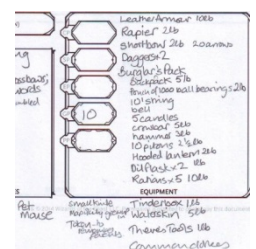 Leather Armour 10lb
Rapier 2lb
Shortbow 2lb 20 arrows
Daggers x2
Burglar's Pack
Backpack 5lb
1000 ball bearings 2lb
10' string
bell
5 candles
crowbar 5lb
hammer 3lb
10 pitons 2½lb
Hooded lantern 2lb
Oil flask x 2
Rations x 5 10lb
10
EQUIPMENT
Pet mouse
small knife
Token to
Tinderbox 1lb
Waterskin 5lb
Thieves Tools 1lb
Common clothes